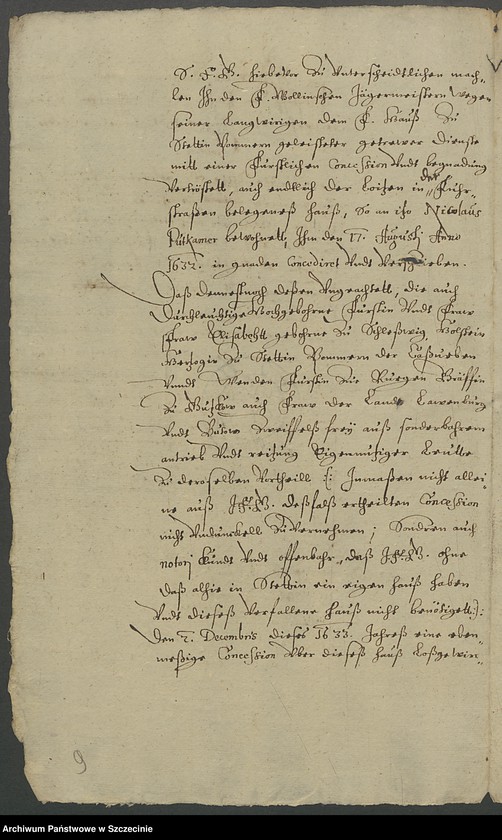 S. F. G. hiebevor zu Unterscheidtlichen mah„
len Ihn den F. Wollinschen Jägermeistern wegen
seiner Langwirigen dem F. Hauß zu
Stettin Pommern geleisteter getrewer Dienste
mitt einer Fürstlichen Concession Undt begnadung
Vertröstett, auch endtlich der Loitzen in der Fuhr„
straßen belegeneß hauß, So an itzo Nicolaus
Putkamer bewohnett, Ihm den 17. Augusti Anno
1632. in gnaden Concediret Undt Verschrieben.
Daß dennoch deßen Ungeachtett, die auch
Durchleuchtige Hochgebohrne Fürstin Undt Fraw
Fraw Elisabeht gebohrne zu Schleßwig, Holstein
Hertzogin zu Stettin Pommern der Caßuben
Unndt Wenden Fürstin zue Ruegen Gräffin
zu Gutzkow auch Fraw der Lande Lawenburg
Undt Butow zweiffelß frey auß sonderbahrem
antrieb Undt reitzung Eigennutziger Leutte
zu deroselben Vortheill [: Inmaßen nicht allei„
ne auß I.F.G. deßfalß ertheilten Concession
nicht Undunckell zu Vernehmen; Sondren auch
notorj kundt Undt offenbahr, daß I.F.G. ohne
daß alhie in Stettin ein eigen hauß haben
Undt dieseß Verfallene hauß nicht benötigett :]
den 2. Decembris dieses 1633. Jahreß eine eben„
meßige Concession Uber dieseß hauß Loßgewir„
9
Archiwum Państwowe w Szczecinie